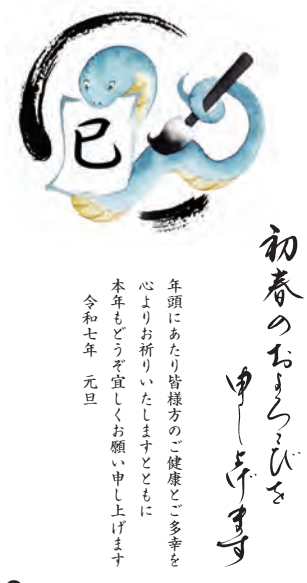 巳
初春のおよろこびを
申し上げます
年頭にあたり皆様方のご健康とご多幸を
心よりお祈りいたしますとともに
本年もどうぞ宜しくお願い申し上げます
令和七年 元旦